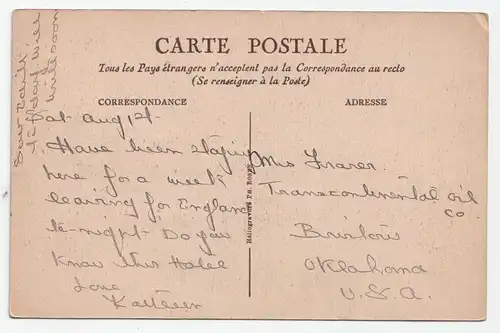 CARTE POSTALE
Tous les Pays étrangers n'acceptent pas la Correspondance au recto
(Se renseigner à la Poste)
CORRESPONDANCE
ADRESSE
Sat- Aug 12th-
Have been staying
here for a week
leaving for England
to-night- Do you
Know this Hotel
Love
Kathleen
Héliogravure Ph. Bor
Transcontinental Oil
Co
Bristow
Oklahoma
U.S.A.